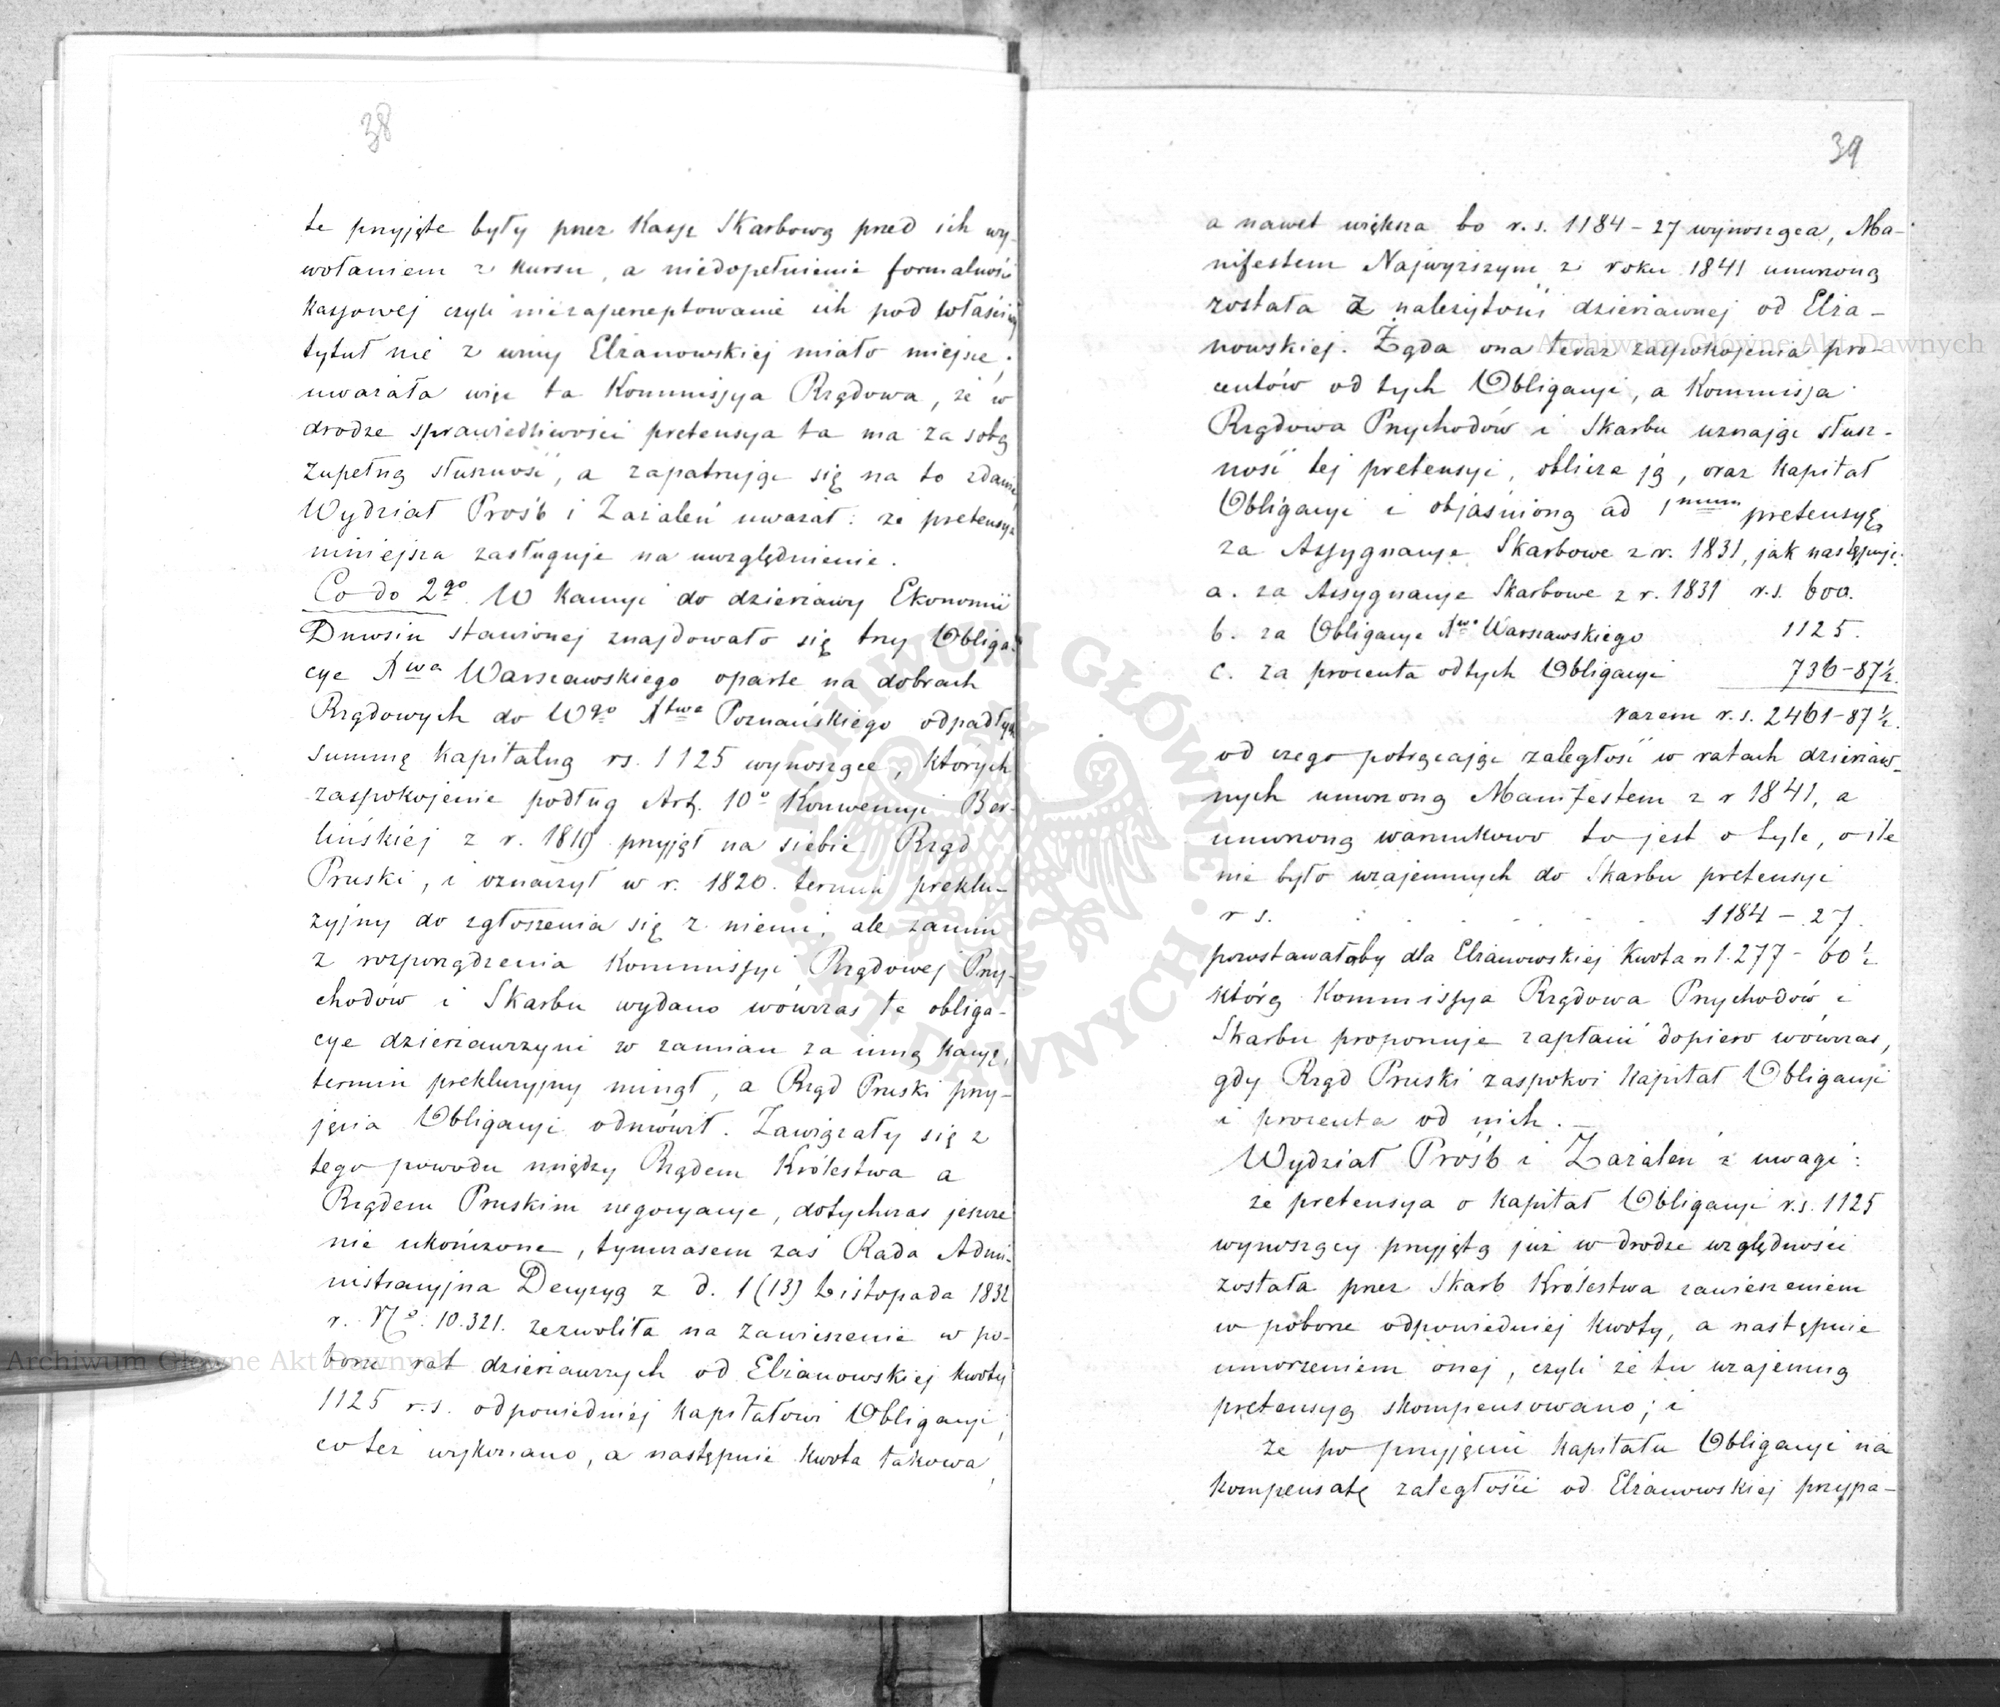 38
te przyjęte były przez Kassę Skarbową przed ich wy-
wołaniem z kursu, a niedopełnienie formalności
Kassowej czyli niezaperceptowanie ich pod właściwy
tytuł nie z winy Elżanowskiej miało miejsce;
uważała więc ta Kommissya Rządowa, że w
drodze sprawiedliwości pretensya ta ma za sobą
zupełną słuszność, a zapatrując się na to zdanie
Wydział Prośb i Zażaleń uważał: że pretensya
niniejsza zasługuje na uwzględnienie.
Co do 2go. W Kaucyi do dzierżawy Ekonomii
stawionej znajdowało się trzy Obliga-
cye Xwa Warszawskiego oparte na dobrach
Rządowych do Wgo Xtwa Poznańskiego odpadłych
summę kapitalną rs. 1125 wynoszące, których
zaspokojenie podług Art. 10o Konwencyi Ber-
lińskiej z r. 1819 przyjął na siebie Rząd
Pruski, i oznaczył w r. 1820. termin preklu-
zyjny do zgłoszenia się z niemi, ale zanim
z rozporządzenia Kommissyi Rządowej Przy-
chodów i Skarbu wydano wówczas te obliga-
cye dzierżawczyni w zamian za inną Kaucyę,
termin prekluzyjny minął, a Rząd Pruski przy-
jęcia Obligacyi odmówił. Zawiązały się z
tego powodu między Rządem Królestwa a
Rządem Pruskim negocyacye, dotychczas jeszcze
nie ukończone, tymczasem zaś Rada Admi-
nistracyjna Decyzyą z d. 1 (13) Listopada 1832
r. No. 10.321. zezwoliła na zawieszenie w po-
borze rat dzierżawczych od Elżanowskiej kwoty
1125 r.s. odpowiedniej Kapitałowi Obligacyi,
co też wykonano, a następnie kwota takowa,
39
a nawet większa bo r.s. 1184 - 27 wynosząca, Ma-
nifestem Najwyższym z roku 1841 umorzoną
została z należytości dzierżawnej od Elża-
nowskiej. Żąda ona teraz zaspokojenia pro-
centów od tych Obligacyi, a Kommissja
Rządowa Przychodów i Skarbu uznając słusz-
ność tej pretensyi, oblicza ją, oraz Kapitał
Obligacyi i objaśnioną ad 1mum pretensyę
za Assygnacye Skarbowe z r. 1831, jak następuje:
a. za Assygnacye Skarbowe z r. 1831 r.s. 600.
b. za Obligacye Xwa Warszawskiego 1125.
c. za procenta od tych Obligacyi 736-87½.
razem r.s. 2461-87½.
od czego potrącając zaległość w ratach dzierżaw-
nych umorzoną Manifestem z r 1841, a
umorzoną warunkowo to jest o tyle, o ile
nie było wzajemnych do Skarbu pretensyi
r s. . . . . . . 1184 - 27.
pozostawałaby dla Elżanowskiej Kwota r s. 1277 - 60½
którą Kommissya Rządowa Przychodów i
Skarbu proponuje zapłacić dopiero wówczas,
gdy Rząd Pruski zaspokoi Kapitał Obligacyi
i procenta od nich. -
Wydział Prośb i Zażaleń z uwagi:
że pretensya o Kapitał Obligacyi r.s. 1125
wynoszący przyjętą już w drodze względności
została przez Skarb Królestwa zawieszeniem
w poborze odpowiedniej kwoty, a następnie
umorzeniem onej, czyli że tu wzajemną
pretensyą skompensowano; i
że po przyjęciu Kapitału Obligacyi na
kompensatę zaległości od Elżanowskiej przypa-
Archiwum Główne Akt Dawnych
Archiwum Główne Akt Dawnych
ARCHIWUM GŁÓWNE AKT DAWNYCH